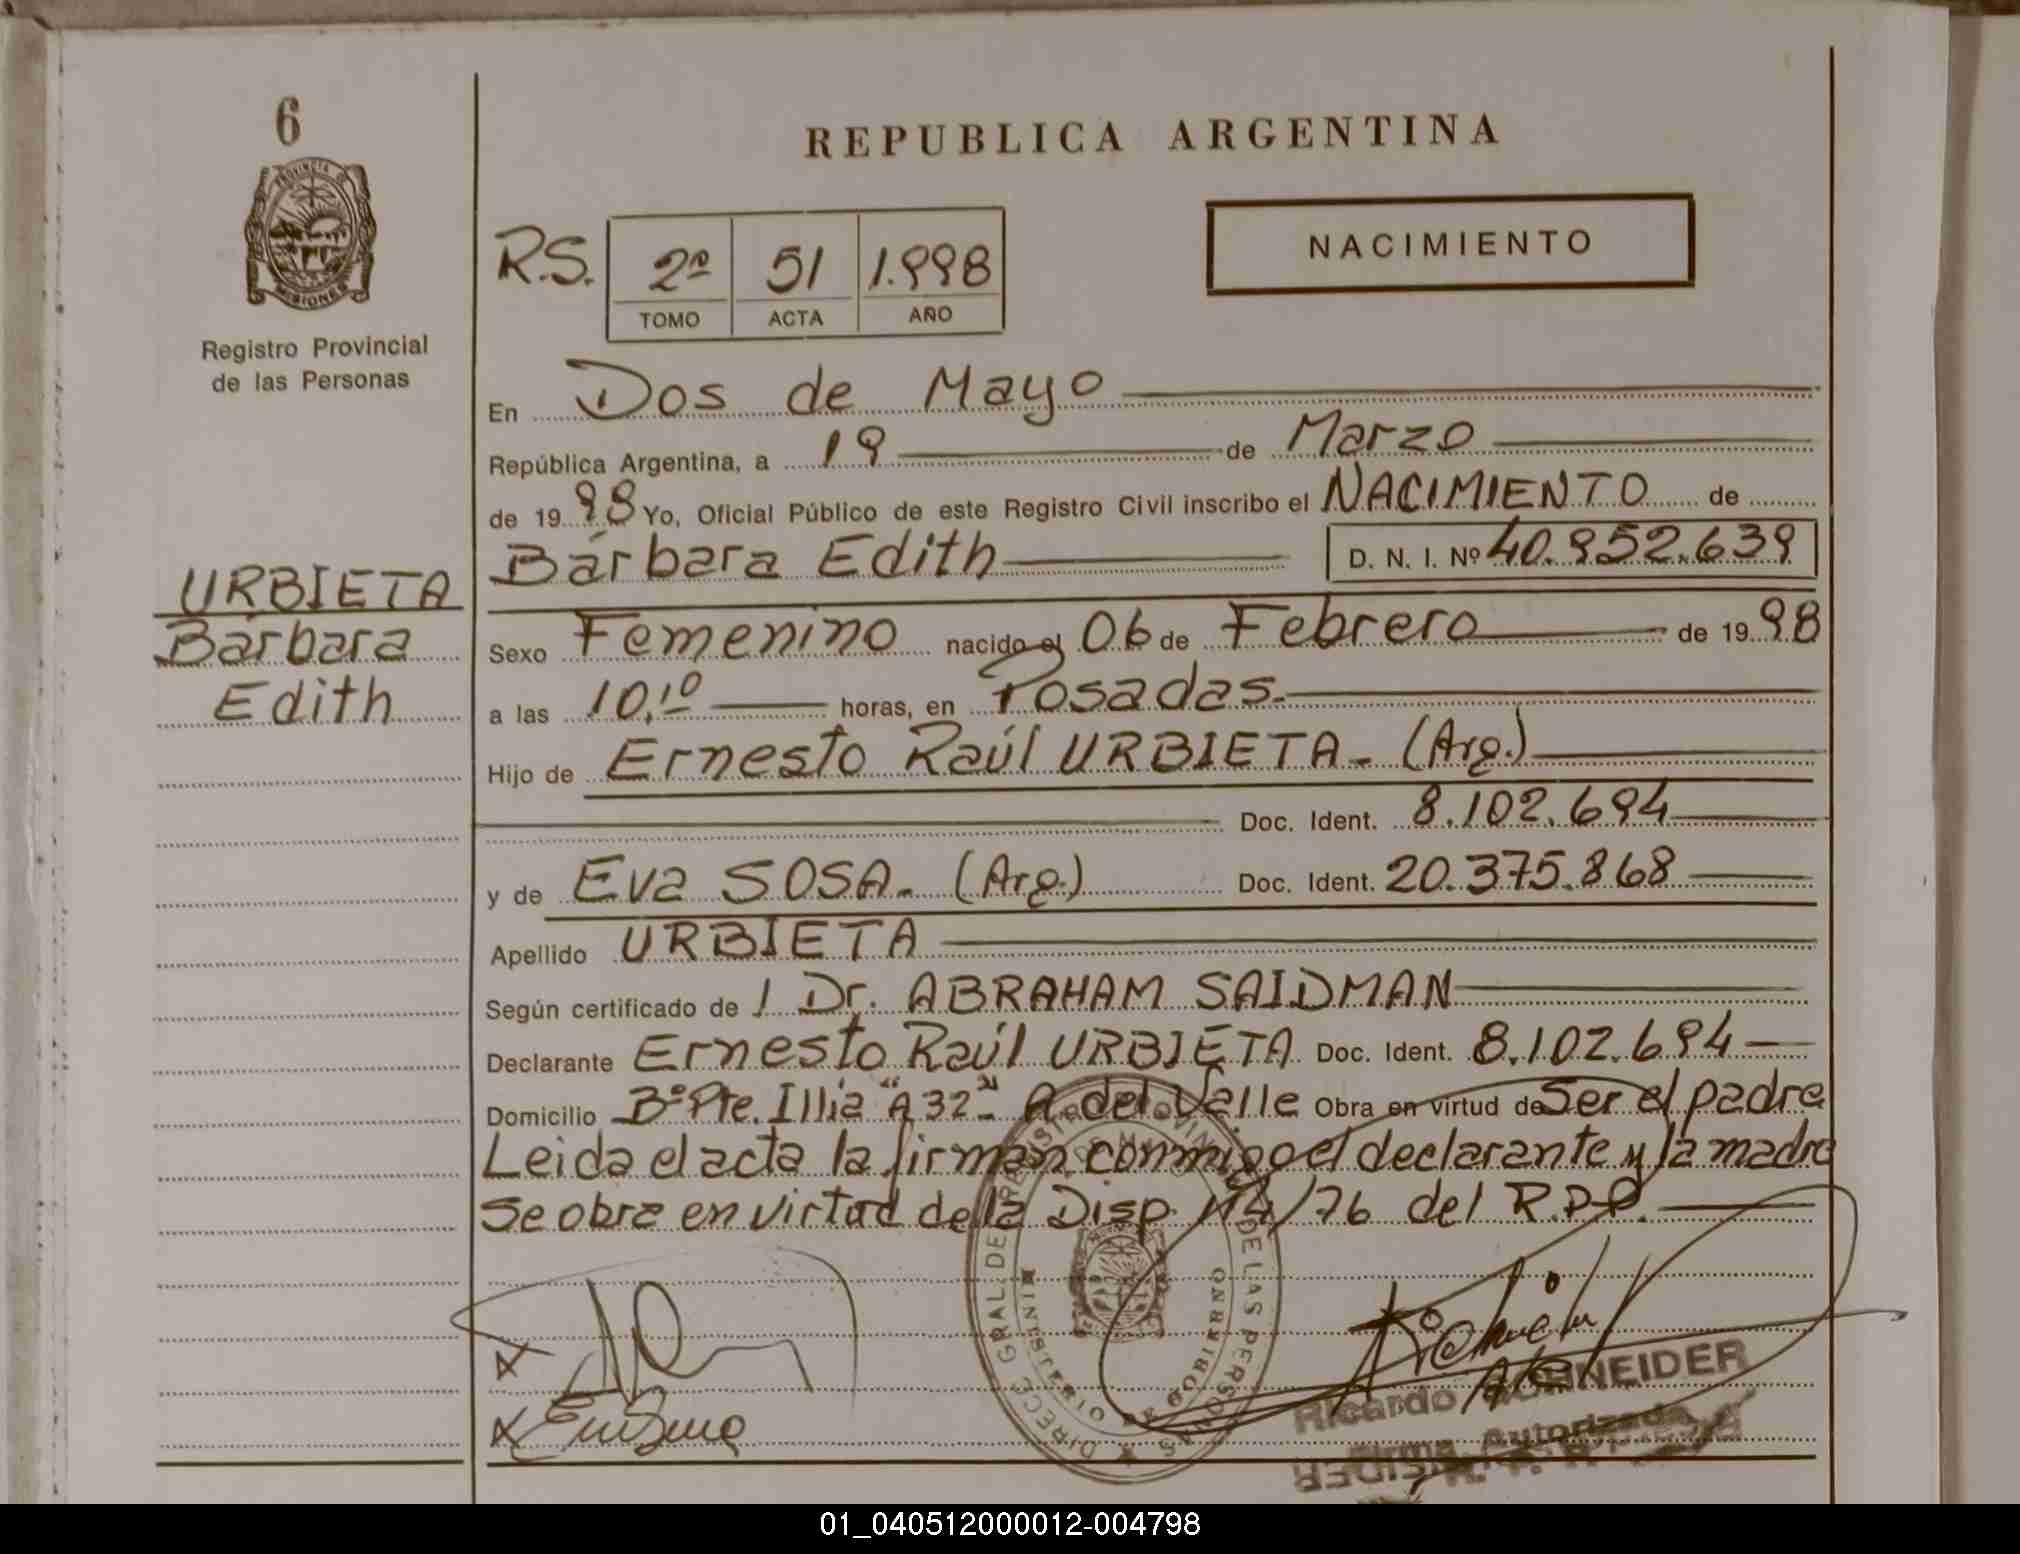 6
PROVINCIA DE
MISIONES
Registro Provincial
de las Personas
REPUBLICA ARGENTINA
NACIMIENTO
R.S. 2º 51 1.998
TOMO ACTA AÑO
En Dos de Mayo
República Argentina, a 19 de Marzo
de 1998 Yo, Oficial Público de este Registro Civil inscribo el NACIMIENTO de
Bárbara Edith D. N. I. Nº 40.952.639
URBIETA
Bárbara
Edith
Sexo Femenino nacido el 06 de Febrero de 1998
a las 10,10 horas, en Posadas.
Hijo de Ernesto Raúl URBIETA. (Arg.)
Doc. Ident. 8.102.694
y de Eva SOSA. (Arg.) Doc. Ident. 20.375.868
Apellido URBIETA
Según certificado de / Dr. ABRAHAM SAIDMAN
Declarante Ernesto Raúl URBIETA Doc. Ident. 8.102.694
Domicilio Bº Pte. Illia "A 32". A. del Valle Obra en virtud de Ser el padre
Leida el acta la firman conmigo el declarante y la madre
Se obra en virtud de la Disp. 114/76 del R.P.P.
DIRECC GRAL. DE REGISTRO PROVINCIAL DE LAS PERSONAS
MINISTERIO DE GOBIERNO
Ricardo SCHNEIDER
Firma Autorizada
01_040512000012-004798